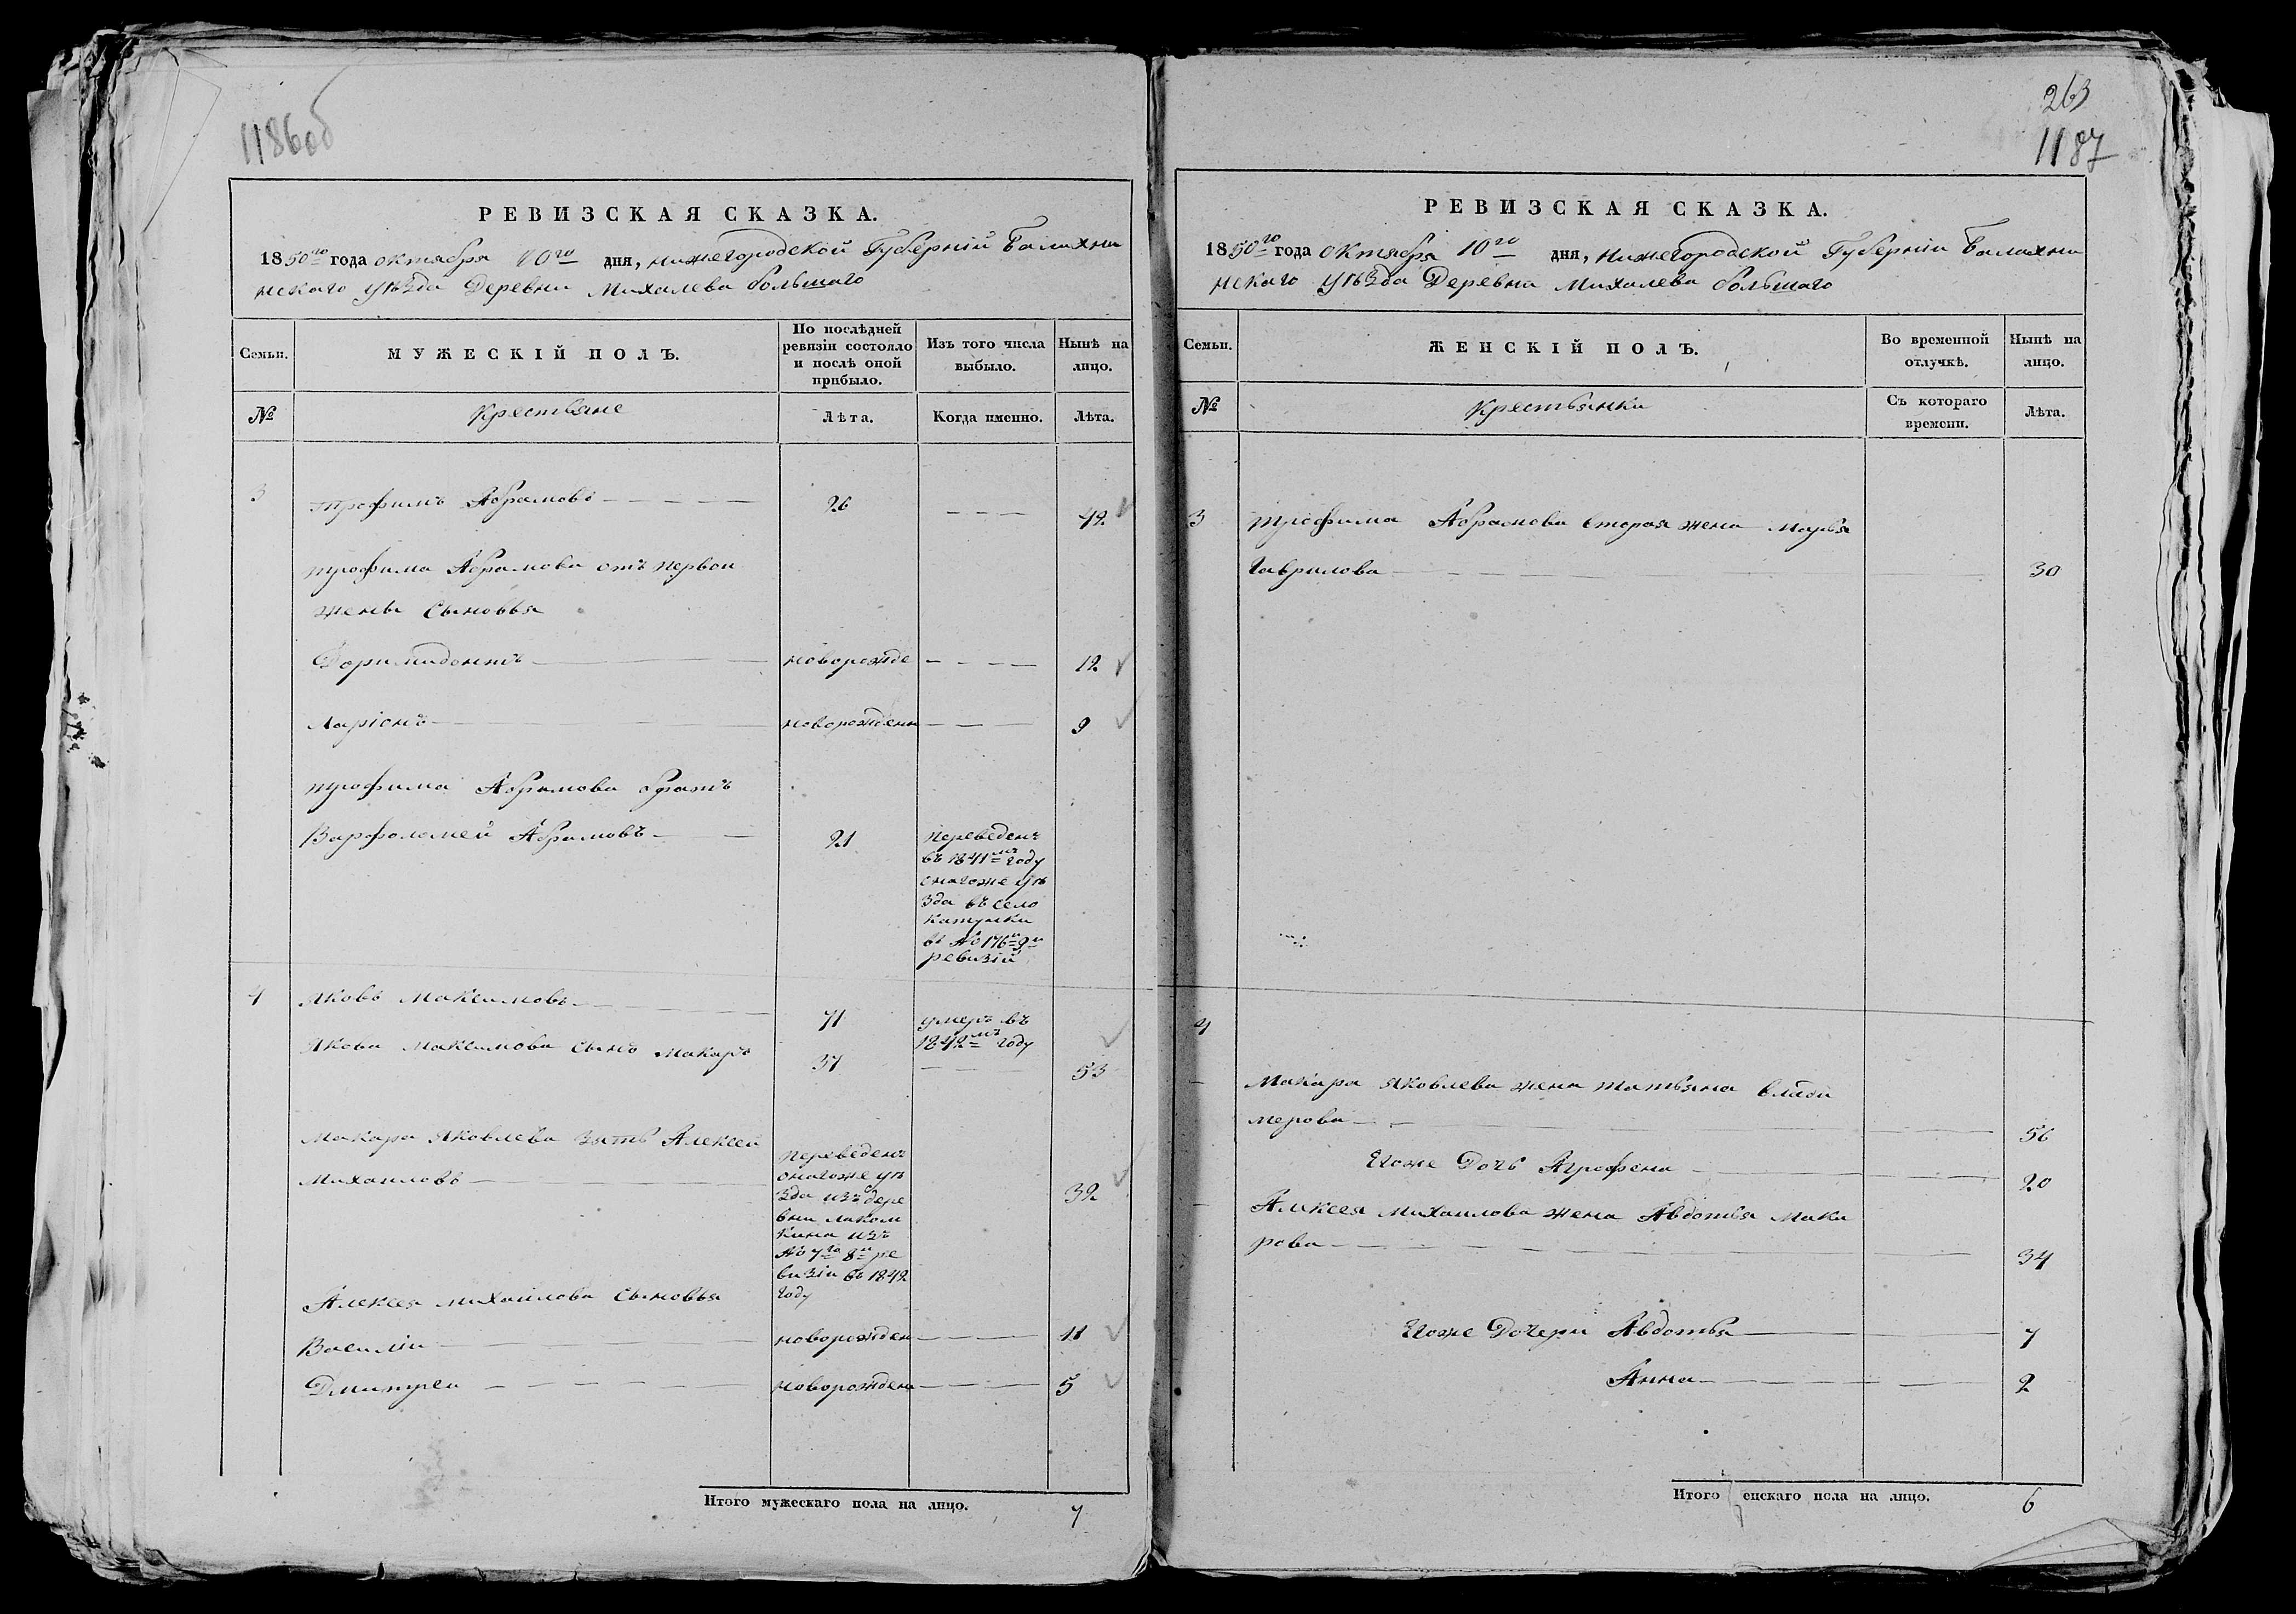 1186об
РЕВИЗСКАЯ СКАЗКА.
1850го года октября 10го дня, нижегородской Губерній Балахни
нскаго уѣзда Деревни Михалева большаго
Семьи.
МУЖЕСКІЙ ПОЛЪ.
По послѣдней
ревизіи состояло
и послѣ оной
прибыло.
Изъ того числа
выбыло.
Нынѣ на
лицо.
№
Крестьяне
Лѣта.
Когда именно.
Лѣта.
3
трофимъ Абрамовъ
26
42
трофима Абрамова отъ первои
жены сыновья
Доримидонтъ
новорожде
12
Ларіонъ
новорожденн
9
трофима Абрамова братъ
Варфоломей Абрамовъ
21
переведенъ
въ 1841мъ году
онагоже уѣ
зда въ село
катунки
въ № 176й 9й
ревизій
4
яковъ максимовъ
71
умеръ въ
1842мъ году
якова максимова сынъ макаръ
37
53
макара яковлева зять Алексей
михаиловъ
переведенъ
онагоже уѣ
зда изъ дере
вни лаком
кина изъ
№ 7го 8й ре
визіи въ 1842
году
32
Алексея михаилова сыновья
Василіи
новорожден
11
Дмитреи
новорожден
5
Итого мужескаго пола на лицо.
7
263
1187
РЕВИЗСКАЯ СКАЗКА.
1850го года октября 10го дня, нижегородской Губерніи Балахни
нскаго уѣзда Деревна Михалева большаго
Семьи.
ЖЕНСКІЙ ПОЛЪ.
Во временной
отлучкѣ.
Нынѣ на
лицо.
№
Крестьянки
Съ котораго
времени.
Лѣта.
3
трофима Абрамова вторая жена марья
Гаврилова
30
4
Макара яковлева жена татьяна влади
мерова
56
Егоже Дочь Агрофена
20
Алексея михаилова жена Авдотья мака
рова
34
Егоже Дочери Авдотья
7
Анна
2
Итого енскаго пола на лицо.
6